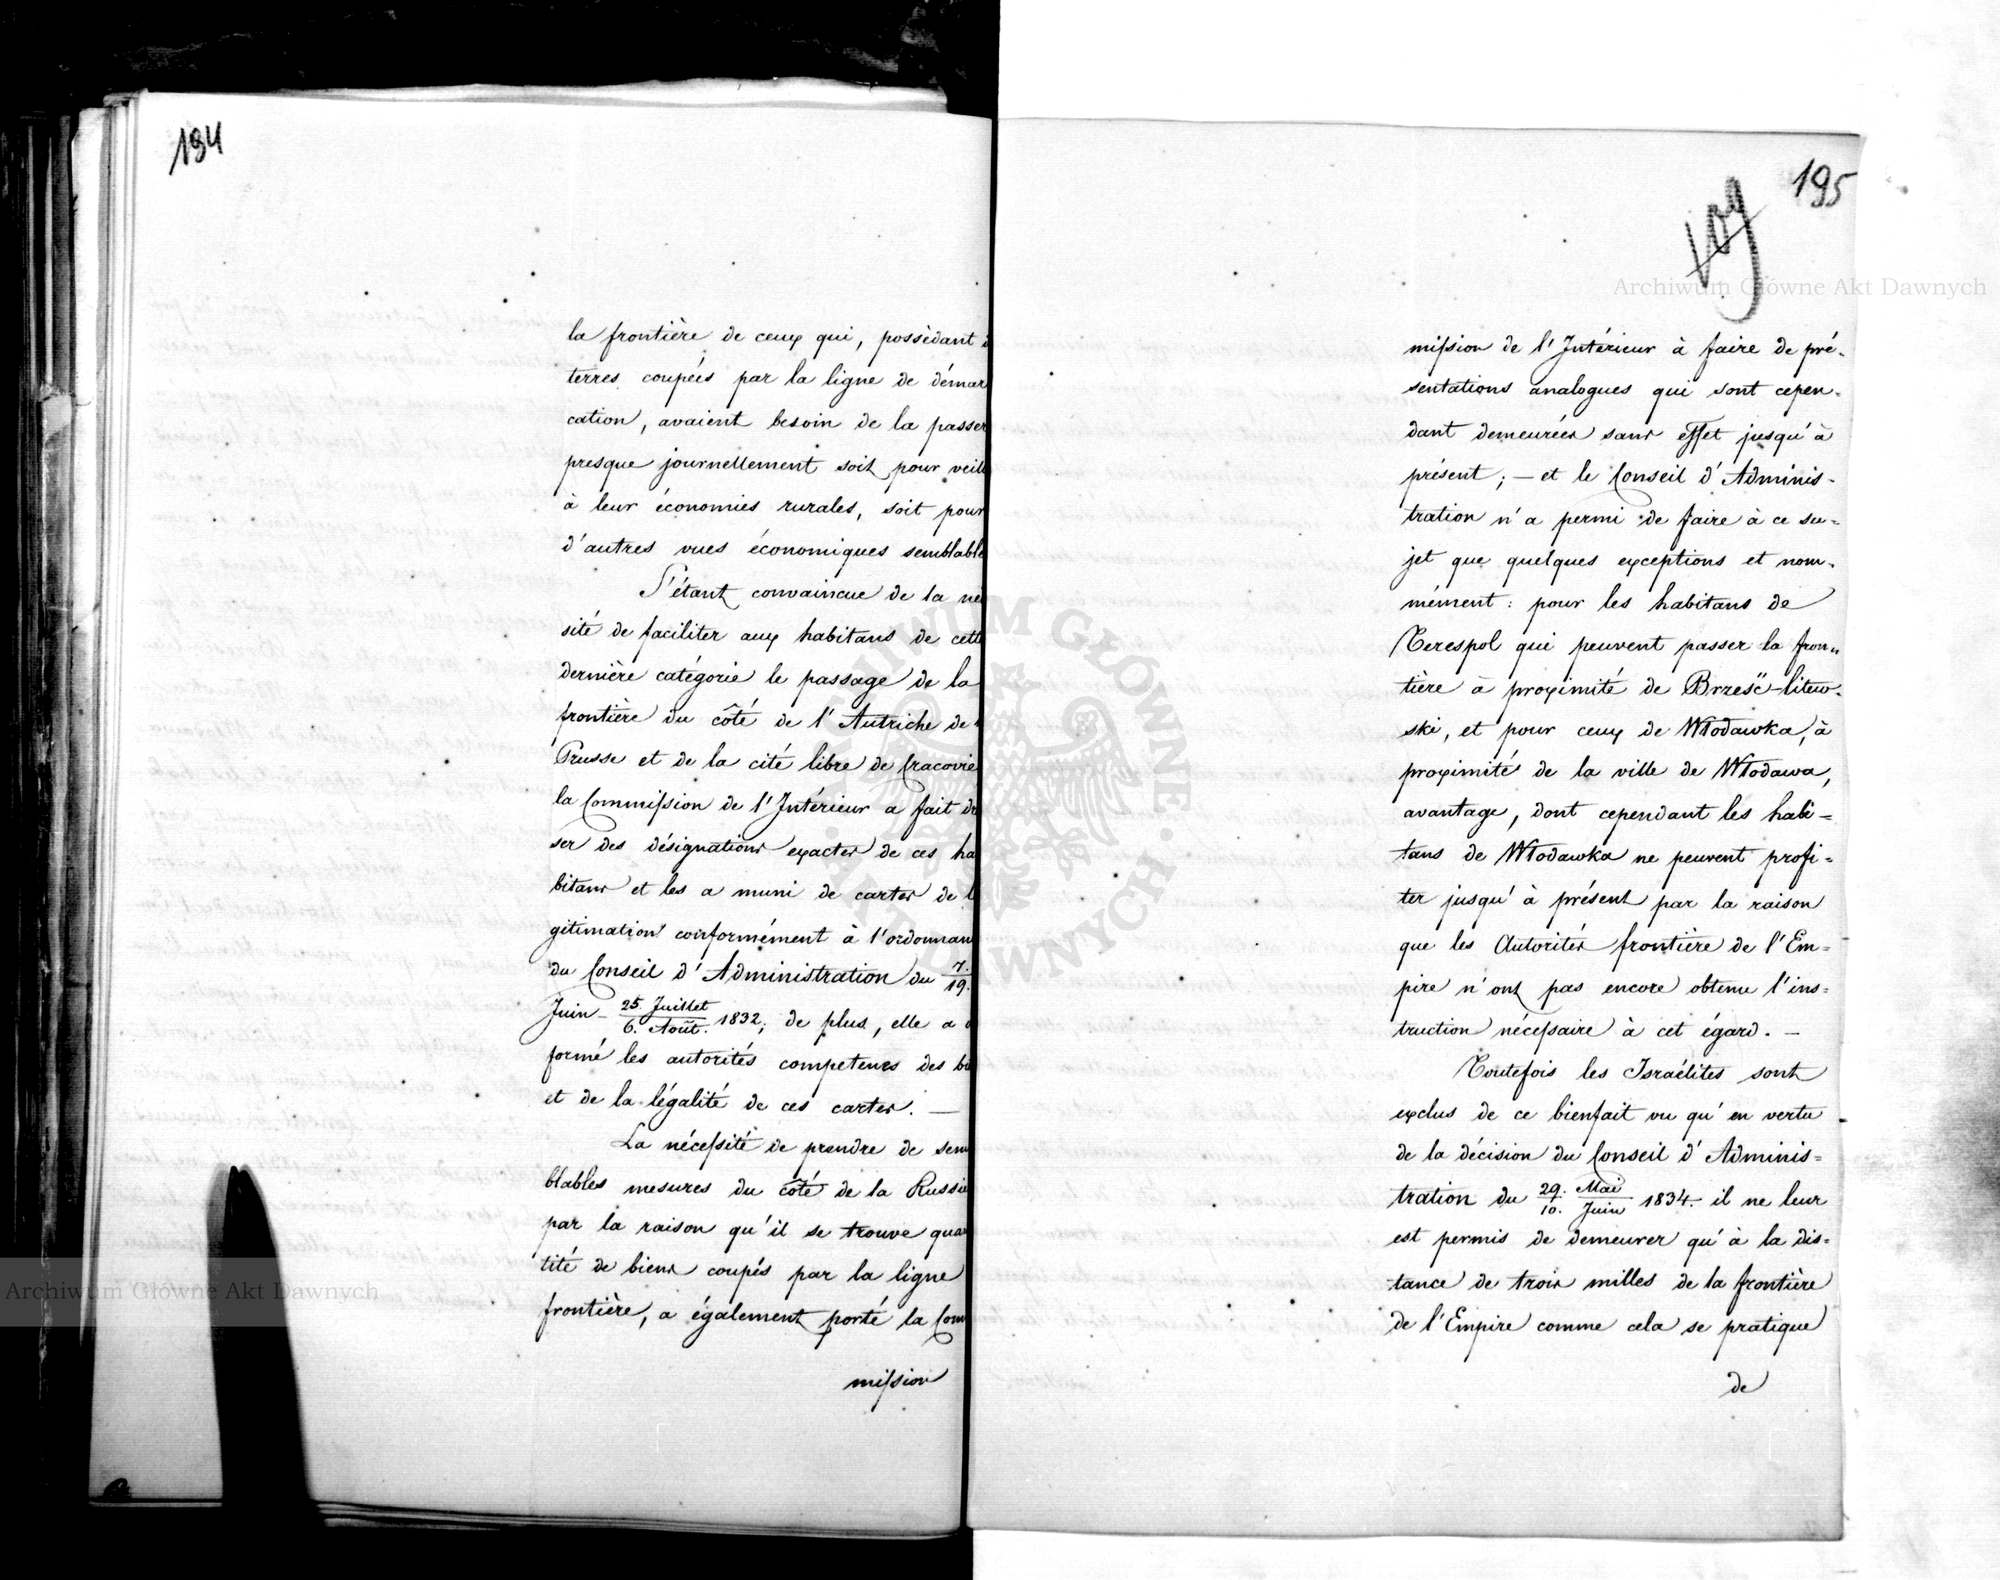 194
la frontière de ceux qui, possèdant
terres coupées par la ligne de démar
cation, avaient besoin de la passer
presque journellement soit pour veill
à leur économies rurales, soit pour
d'autres vues économiques semblabl
S'étant convaincue de la né
sité de faciliter aux habitans de cett
dernière catégorie le passage de la
frontière du côté de l'Autriche de
Prusse et de la cité libre de Cracovie
la Commission de l'Intérieur a fait dr
ser des désignations exactes de ces ha
bitans et les a muni de cartes de l
gitimation conformément à l'ordonnan
du Conseil d'Administration du 7./19.
Juin – 25. Juillet/6. Août. 1832; de plus, elle a
formé les autorités competents des bu
et de la légalité de ces cartes. —
La nécessité de prendre de sem
blables mesures du côté de la Russie
par la raison qu'il se trouve quan
tité de biens coupés par la ligne
frontière, a également porté la Com
mission
195
109
mission de l'Intérieur à faire de pré-
sentations analogues qui sont cepen-
dant demeurées sans effet jusqu'à
présent; — et le Conseil d'Adminis-
tration n'a permi de faire à ce su=
jet que quelques exceptions et nom-
mément: pour les habitans de
Terespol qui peuvent passer la fron=
tière à proximité de Brześć-litew-
ski, et pour ceux de Włodawka, à
proximité de la ville de Włodawa,
avantage, dont cependant les habi=
tans de Włodawka ne peuvent profi=
ter jusqu'à présent par la raison
que les Autorités frontière de l'Em=
pire n'ont pas encore obtenu l'ins=
truction nécessaire à cet égard. —
Toutefois les Israélites sont
exclus de ce bienfait vu qu'en vertu
de la décision du Conseil d'Adminis=
tration du 29. Mai/10. Juin 1834. il ne leur
est permis de demeurer qu'à la dis=
tance de trois milles de la frontière
de l'Empire comme cela se pratique
de
Archiwum Główne Akt Dawnych
Archiwum Główne Akt Dawnych
ARCHIWUM GŁÓWNE · AKT DAWNYCH ·